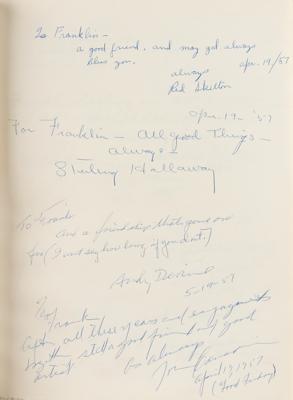 To Franklin –
a good friend. and may god always
bless you.
apr. 19/57
always
Red Skelton
Apr. 19 – '57
For Franklin – All good Things –
always –
Sterling Holloway
To Frank
and a friendship that goes on
for (I wont say how long if you dont.)
Andy Devine
5-19-57
To Frank
After all these years and engagements
both still a good friend and good
artist
As always,
April 19, 1957
(Good Friday)